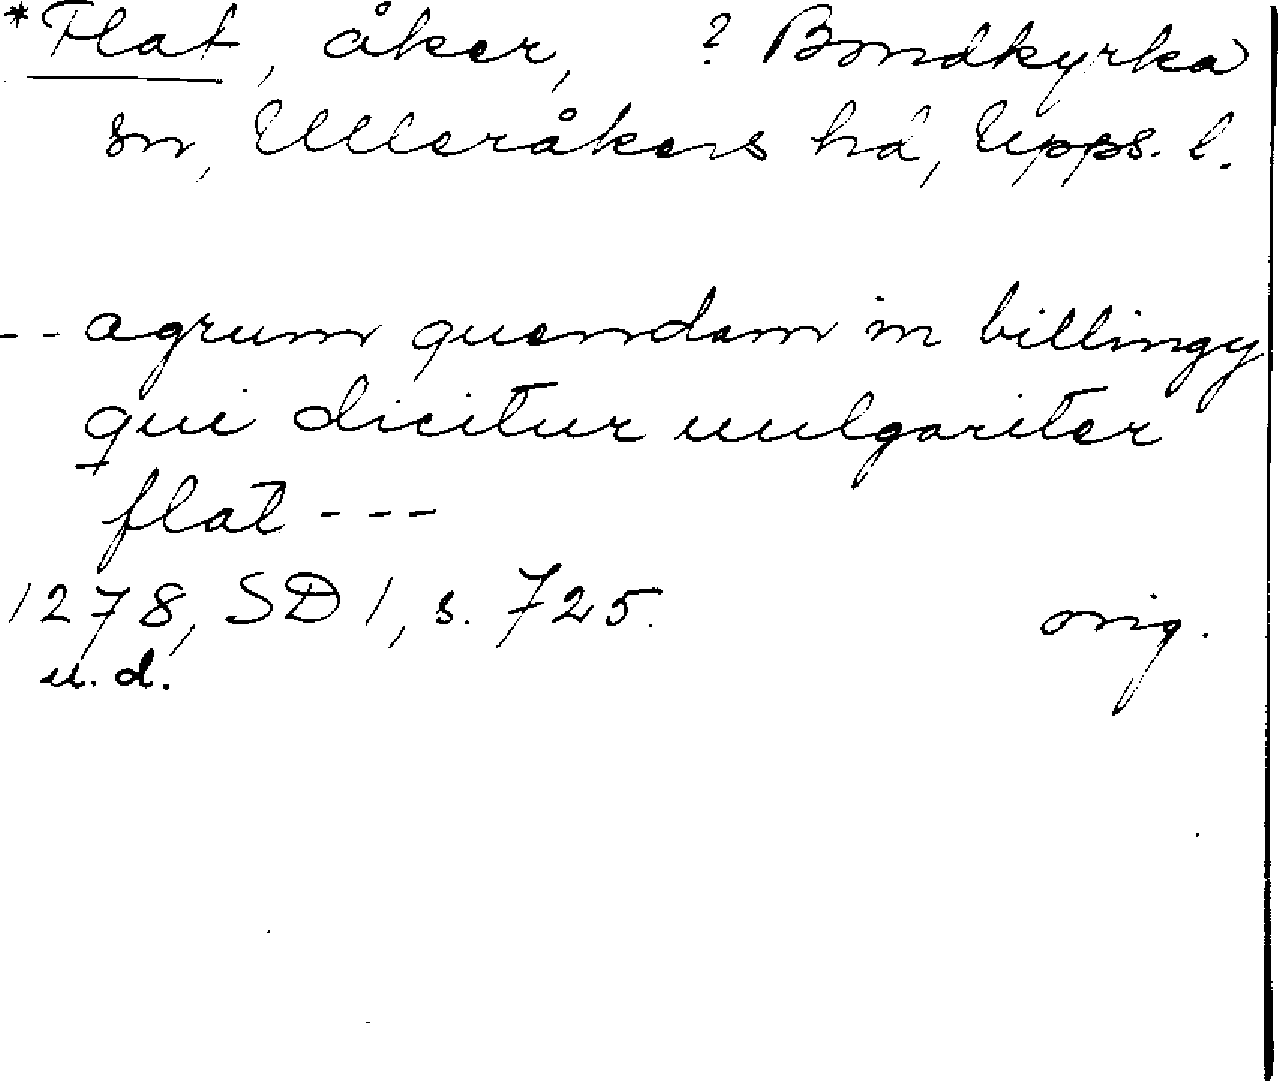 *Flat, åker, ? Bondkyrka
sn, Ulleråkers hd, Upps. l.
-- agrum quendam in billingy
qui dicitur uulgariter
flat ---
1278, SD 1, s. 725. orig.
u. d.